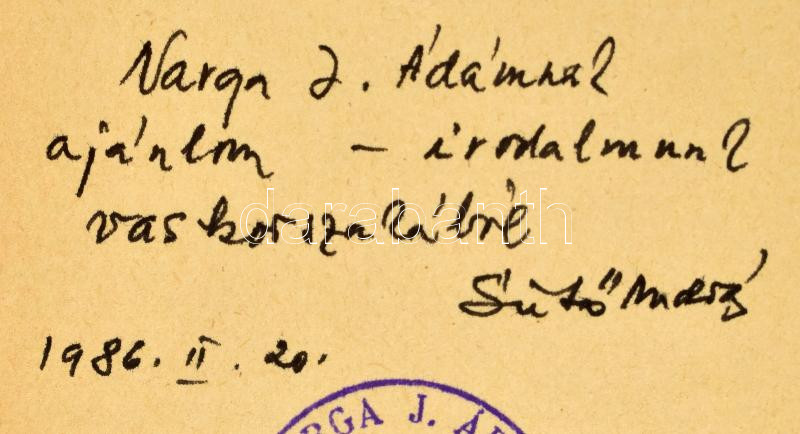 Varga J. Ádámnak
ajánlom – irodalmunk
vaskorszakából
Sütő András
1986. II. 20.
darabanth
RGA J. Á